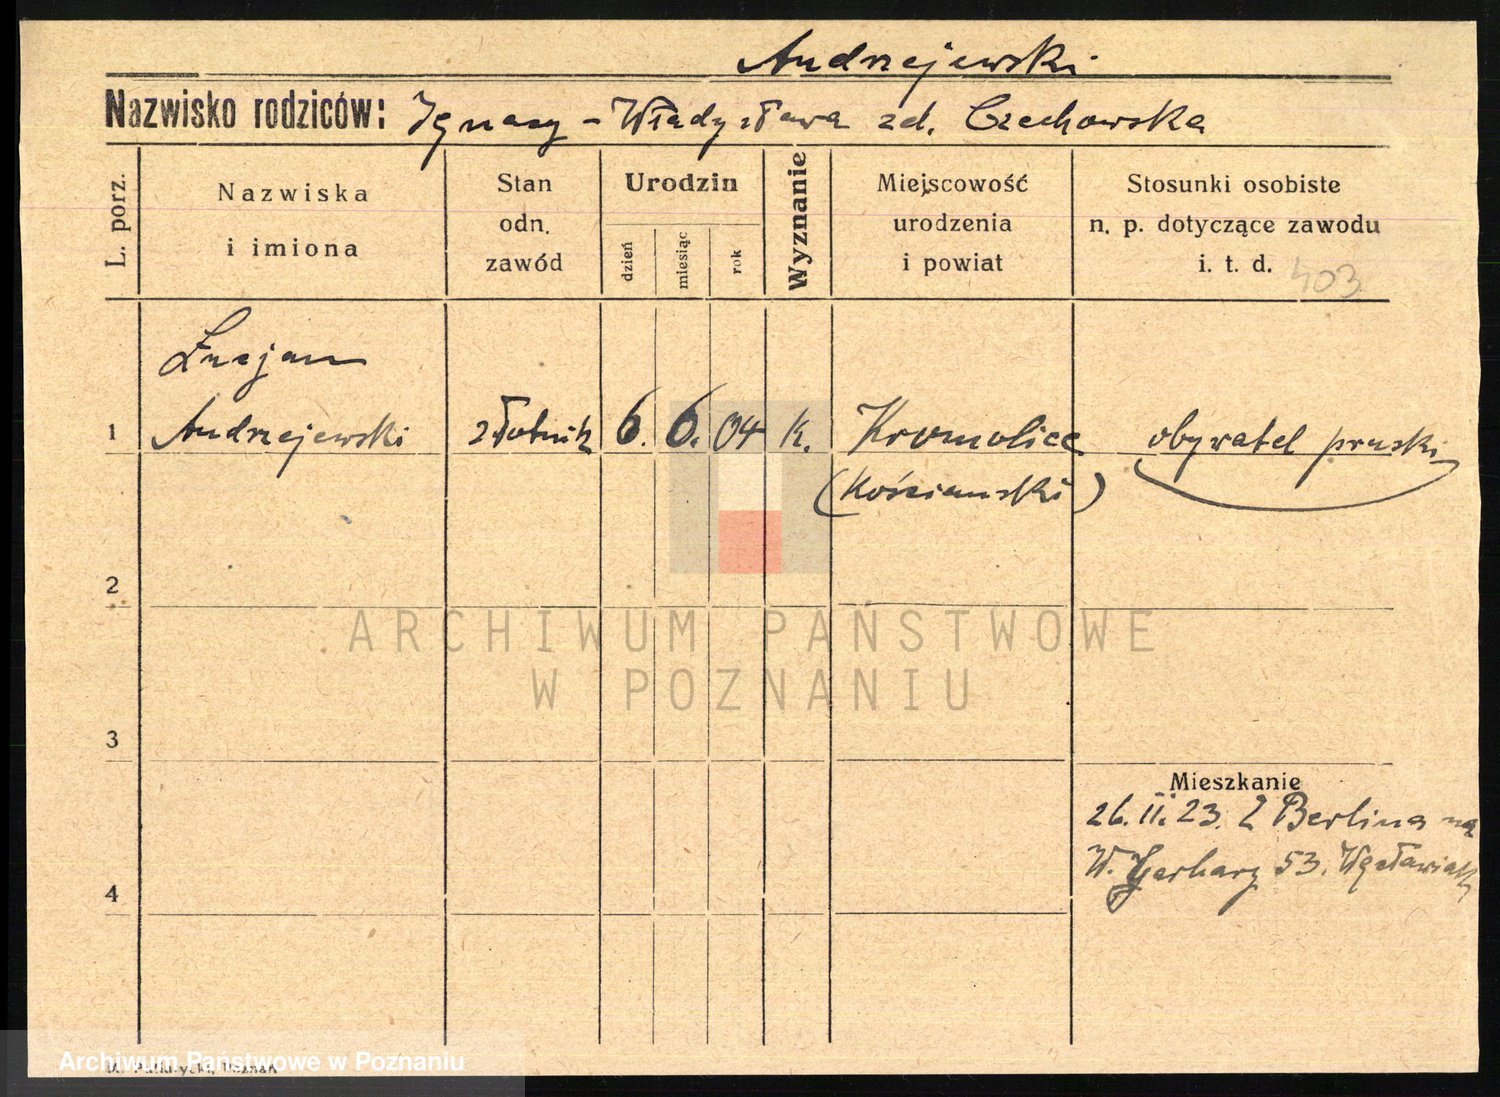 Andrzejewski
Nazwisko rodziców: Ignacy - Władysława zd. Czechowska
L. porz.
Nazwiska
i imiona
Stan
odn.
zawód
Urodzin
dzień
miesiąc
rok
Wyznanie
Miejscowość
urodzenia
i powiat
Stosunki osobiste
n. p. dotyczące zawodu
i. t. d.
403
Lucjan
1 Andrzejewski złotnik 6. 6. 04 k. Kromolice obywatel pruski
(Kościański)
2
ARCHIWUM PAŃSTWOWE
W POZNANIU
3
Mieszkanie
26.II.23. Z Berlina na
W. Garbary 53.
4
Archiwum Państwowe w Poznaniu
Poznań